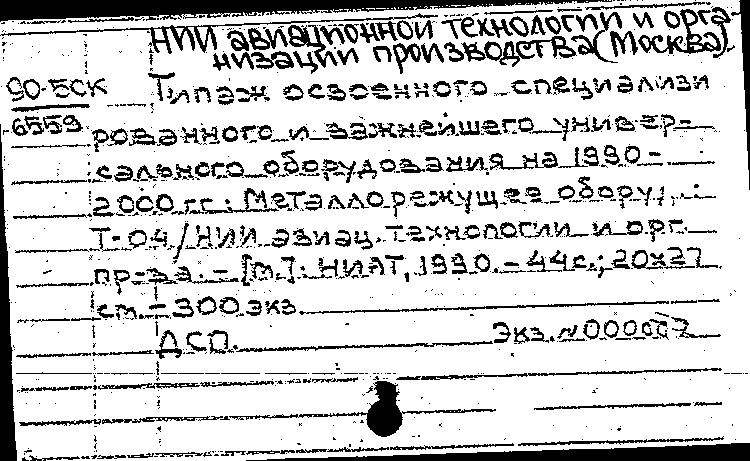 НИИ авиационной технологии и орга-
низации производства (Москва).
90-5СК
6559
Типаж освоенного специализи
рованного и важнейшего универ-
сального оборудования на 1990-
2000 гг.: Металлорежущее обору,..:
Т-04/НИИ авиац. технологии и орг.
пр-ва. - [М.]: НИАТ, 1990. - 44с.; 20х27
см. - 300 экз.
ДСП. Экз. №